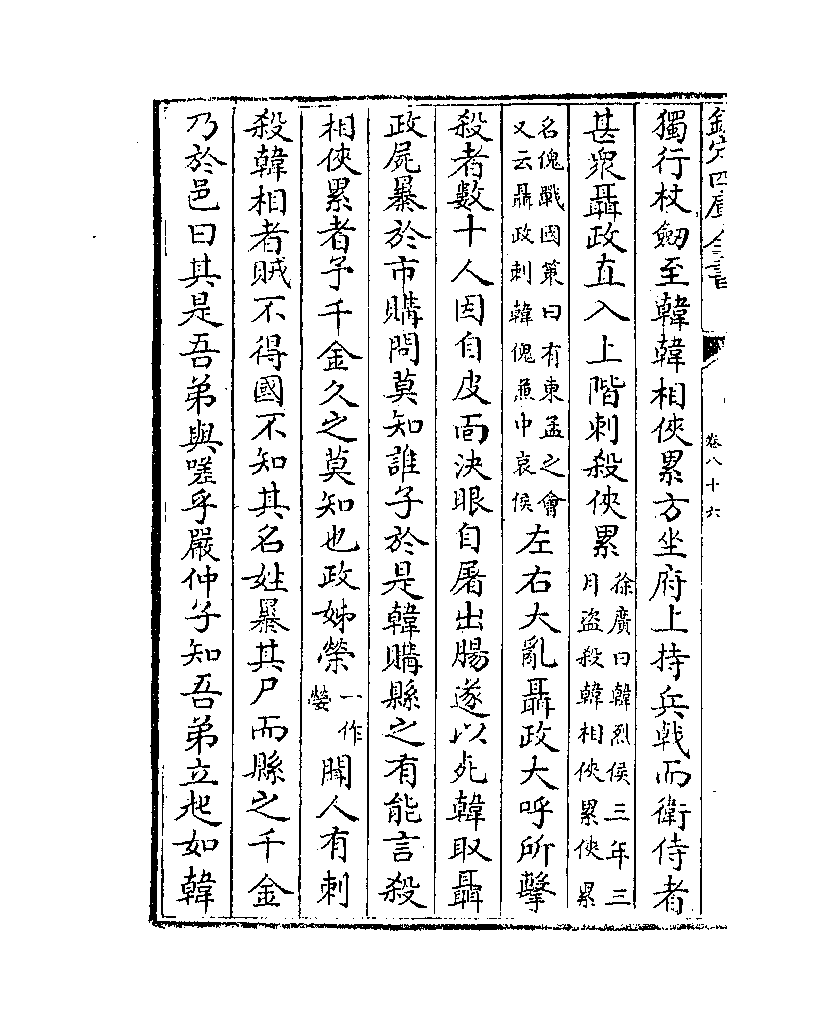 欽定四庫全書
卷八十六
獨行杖劒至韓韓相俠累方坐府上持兵戟而衛侍者
甚衆聶政直入上階刺殺俠累徐廣曰韓烈侯三年三月盜殺韓相俠累俠累
名傀戰國策曰有東孟之會又云聶政刺韓傀兼中哀侯左右大亂聶政大呼所擊
殺者數十人因自皮面決眼自屠出腸遂以死韓取聶
政屍暴於市購問莫知誰子於是韓購縣之有能言殺
相俠累者予千金久之莫知也政姊榮一作嫈聞人有刺
殺韓相者賊不得國不知其名姓暴其尸而縣之千金
乃於邑曰其是吾弟與嗟乎嚴仲子知吾弟立起如韓